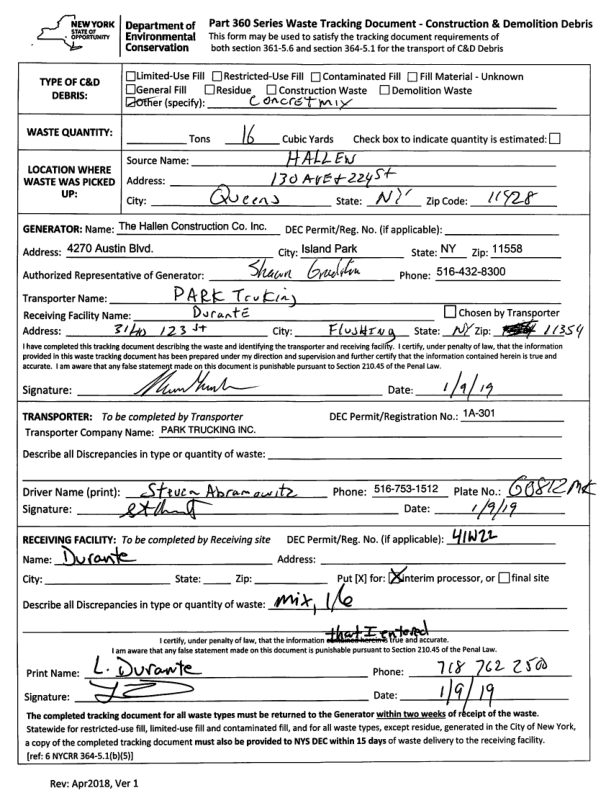 NEW YORK STATE OF OPPORTUNITY
Department of Environmental Conservation
Part 360 Series Waste Tracking Document - Construction & Demolition Debris
This form may be used to satisfy the tracking document requirements of
both section 361-5.6 and section 364-5.1 for the transport of C&D Debris
TYPE OF C&D DEBRIS:
Limited-Use Fill Restricted-Use Fill Contaminated Fill Fill Material - Unknown
General Fill Residue Construction Waste Demolition Waste
Other (specify): Concret mix
WASTE QUANTITY: Tons 16 Cubic Yards Check box to indicate quantity is estimated:
LOCATION WHERE WASTE WAS PICKED UP:
Source Name: HALLEN
Address: 130 AVE + 224 St
City: Queens State: NY Zip Code: 11428
GENERATOR: Name: The Hallen Construction Co. Inc. DEC Permit/Reg. No. (if applicable):
Address: 4270 Austin Blvd. City: Island Park State: NY Zip: 11558
Authorized Representative of Generator: Shawn Phone: 516-432-8300
Transporter Name: PARK Truking
Receiving Facility Name: DurantE Chosen by Transporter
Address: 31/40 123 St City: FLUSHING State: NY Zip: 11354
I have completed this tracking document describing the waste and identifying the transporter and receiving facility. I certify, under penalty of law, that the information
provided in this waste tracking document has been prepared under my direction and supervision and further certify that the information contained herein is true and
accurate. I am aware that any false statement made on this document is punishable pursuant to Section 210.45 of the Penal Law.
Signature: Date: 1/9/19
TRANSPORTER: To be completed by Transporter DEC Permit/Registration No.: 1A-301
Transporter Company Name: PARK TRUCKING INC.
Describe all Discrepancies in type or quantity of waste:
Driver Name (print): Steven Abramowitz Phone: 516-753-1512 Plate No.: 60872MK
Signature: Date: 1/9/19
RECEIVING FACILITY: To be completed by Receiving site DEC Permit/Reg. No. (if applicable): 41W22
Name: Durante Address:
City: State: Zip: Put [X] for: X interim processor, or final site
Describe all Discrepancies in type or quantity of waste: mix, 16
that I entered
I certify, under penalty of law, that the information contained herein is true and accurate.
I am aware that any false statement made on this document is punishable pursuant to Section 210.45 of the Penal Law.
Print Name: L. Durante Phone: 718 762 2500
Signature: Date: 1/9/19
The completed tracking document for all waste types must be returned to the Generator within two weeks of receipt of the waste.
Statewide for restricted-use fill, limited-use fill and contaminated fill, and for all waste types, except residue, generated in the City of New York,
a copy of the completed tracking document must also be provided to NYS DEC within 15 days of waste delivery to the receiving facility.
[ref: 6 NYCRR 364-5.1(b)(5)]
Rev: Apr2018, Ver 1